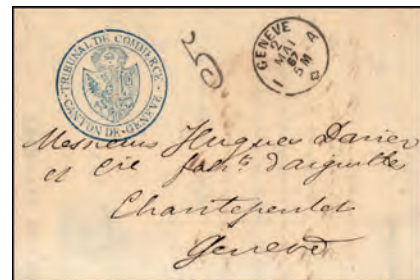 TRIBUNAL DE COMMERCE
CANTON-DE-GENÈVE
GENÈVE A
2
MAI
67
5 M
1
Messieurs Hugues Darier
et Cie fab.ts d'aiguilles
Chantepoulet
Genève